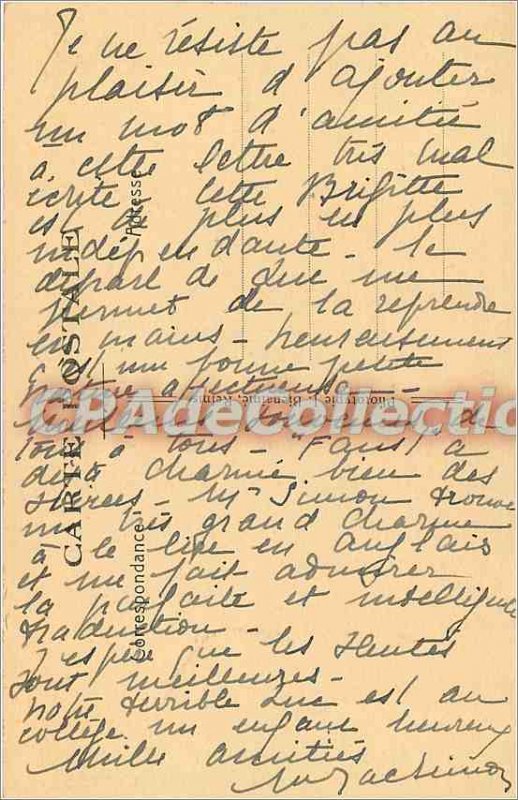 Je ne résiste pas au
plaisir d'ajouter
un mot d'amitié
à cette lettre très mal
écrite. Cette Brigitte
est de plus en plus
indépendante. le
départ de Luc me
permet de la reprendre
en mains - heureusement
c'est une bonne petite
nature affectueuse -
souvenirs de
tous à tous. "Faust" a
déjà charmé bien des
soirées - Mr Simon trouve
un très grand charme
à le lire en anglais
et me fait admirer
la parfaite et intelligente
traduction -
J'espère que les santés
sont meilleures -
notre terrible Luc est au
collège un enfant heureux
Mille amitiés
CARTE POSTALE
Correspondance
Adresse
Phototypie J. Bienaimé, Reims
CPAdeCollection